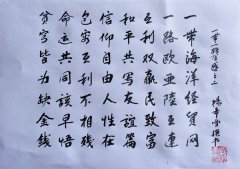 一带一路有感之二
一带海洋经贸网
一路欧亚陆互连
互利双赢民致富
和平共写友谊篇
信仰自由人性在
包容互利不相残
命运共同该早悟
贫穷皆为缺金钱